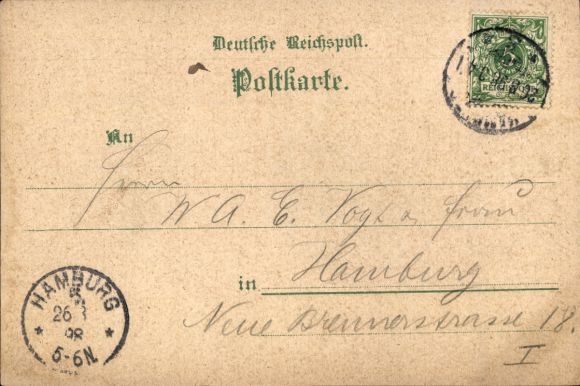 Deutsche Reichspost.
Postkarte.
An
Herrn
W A. E. Vogt & Frau
in Hamburg
Neue Brennerstrasse 18.
I
HAMBURG
5
26 3
98
5-6N.
REICHSPOST